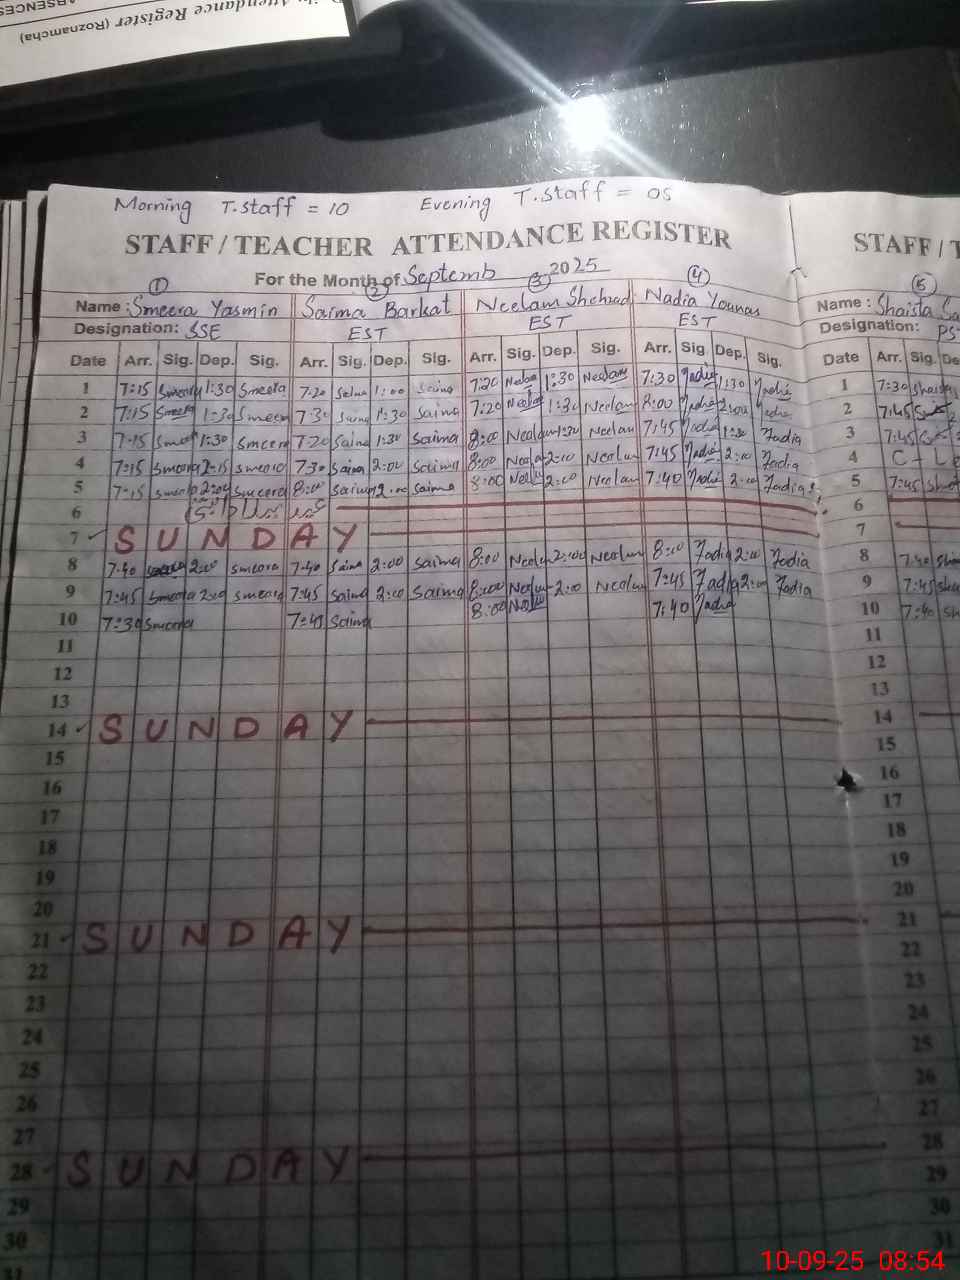 ABSENCES
Attendance Register (Roznamcha)
Morning T.staff = 10 Evening T.staff = 05
STAFF / TEACHER ATTENDANCE REGISTER STAFF / T
For the Month of Septemb 2025
1 2 3 4 5
Name : Smeera Yasmin Saima Barkat Neelam Shehzad Nadia Younas Name : Shaista Sa
Designation: SSE EST EST EST Designation: PS
Date Arr. Sig. Dep. Sig. Arr. Sig. Dep. Sig. Arr. Sig. Dep. Sig. Arr. Sig. Dep. Sig. Date Arr. Sig. De
1 7:15 Smeera 1:30 Smeera 7:20 Saima 1:00 Saima 7:20 Neelam 1:30 Neelam 7:30 Nadia 1:30 Nadia 1 7:30 Shaist
2 7:15 Smeera 1:30 Smeera 7:30 Saima 1:30 Saima 7:20 Neelam 1:30 Neelam 8:00 Nadia 2:00 Nadia 2 7:45
3 7:15 Smeera 1:30 Smeera 7:20 Saima 1:30 Saima 8:00 Neelam 1:30 Neelam 7:45 Nadia 1:30 Nadia 3 7:45
4 7:15 Smeera 2:15 Smeera 7:30 Saima 2:00 Saima 8:00 Neelam 2:10 Neelam 7:45 Nadia 2:00 Nadia 4 C - Le
5 7:15 Smeera 2:00 Smeera 8:00 Saima 2:00 Saima 8:00 Neelam 2:00 Neelam 7:40 Nadia 2:00 Nadia 5 7:45
6 6
7 SUNDAY 7
8 7:40 2:00 Smeera 7:40 Saima 2:00 Saima 8:00 Neelam 2:00 Neelam 8:00 Nadia 2:00 Nadia 8 7:40
9 7:45 Smeera 2:00 Smeera 7:45 Saima 2:00 Saima 8:00 Neelam 2:00 Neelam 7:45 Nadia 2:00 Nadia 9 7:45
10 7:30 Smeera 7:40 Saima 8:00 Neelam 7:40 Nadia 10 7:40
11 11
12 12
13 13
14 SUNDAY 14
15 15
16 16
17 17
18 18
19 19
20 20
21 SUNDAY 21
22 22
23 23
24 24
25 25
26 26
27 27
28 SUNDAY 28
29 29
30 30
31 31
10-09-25 08:54